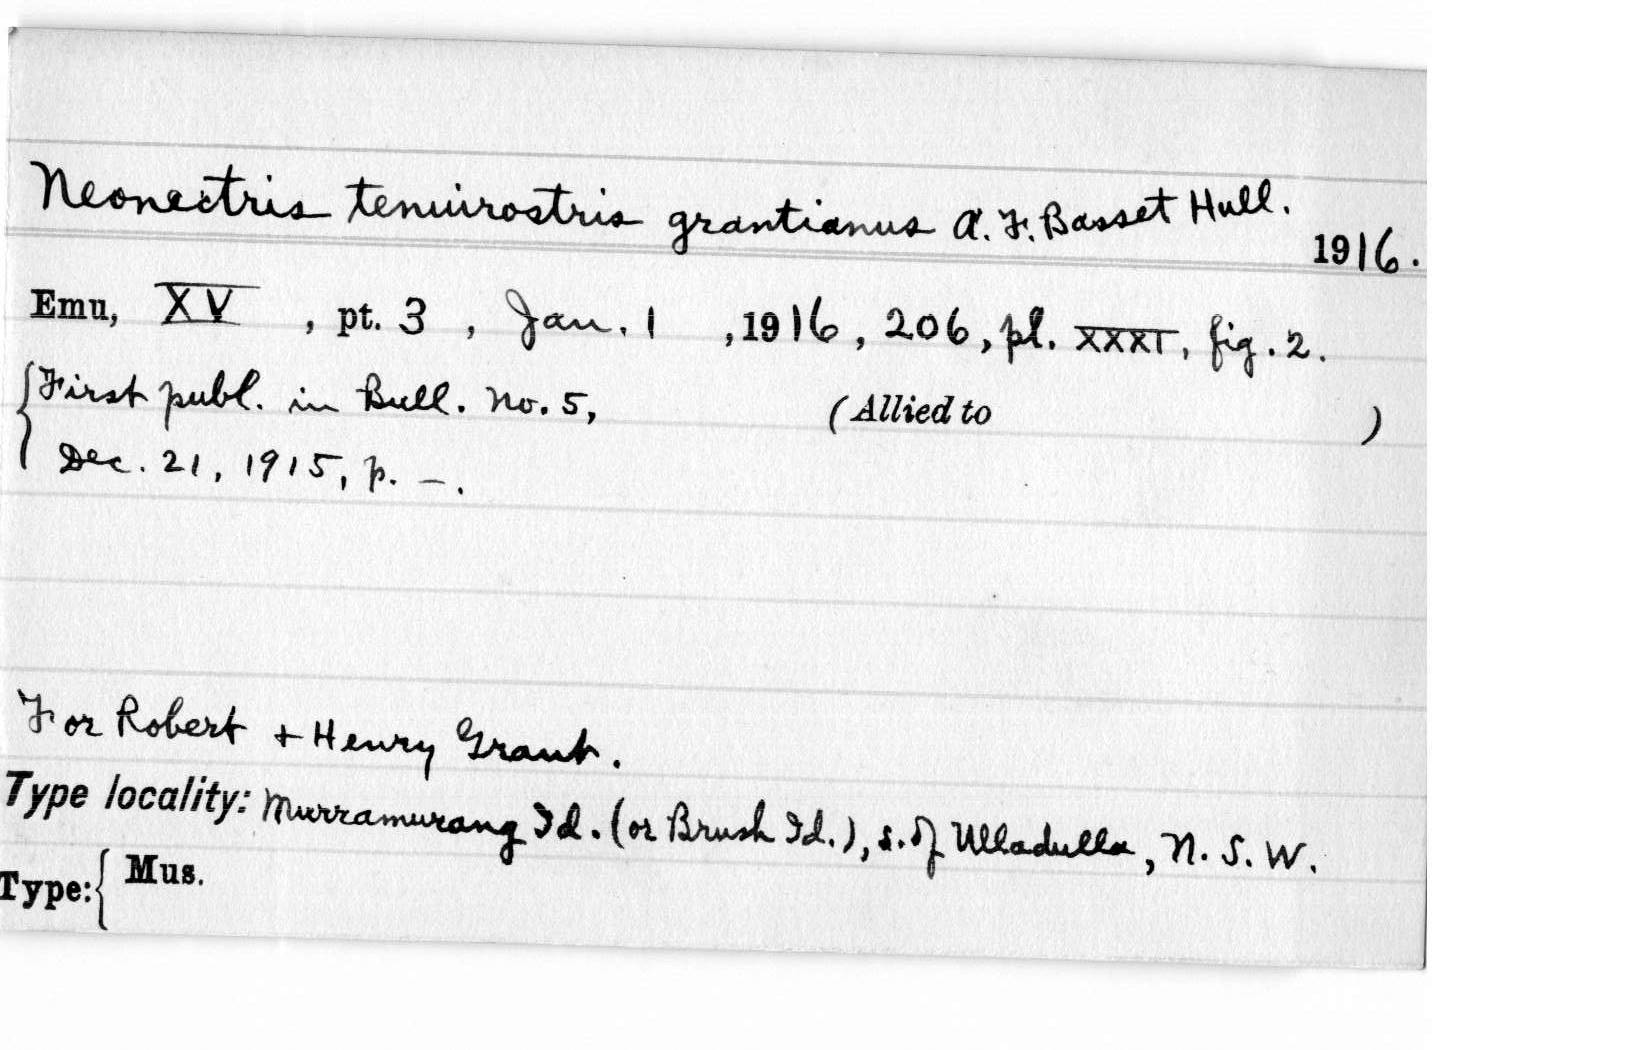 Neonectris tenuirostris grantianus A. F. Basset Hull.
1916.
Emu, XV, pt. 3, Jan. 1, 1916, 206, pl. XXXI, fig. 2.
{First publ. in Bull. No. 5, (Allied to )
Dec. 21, 1915, p. –.
For Robert + Henry Grant.
Type locality: Murramurang Id. (or Brush Id.), s. of Ulladulla, N. S. W.
Type: { Mus.